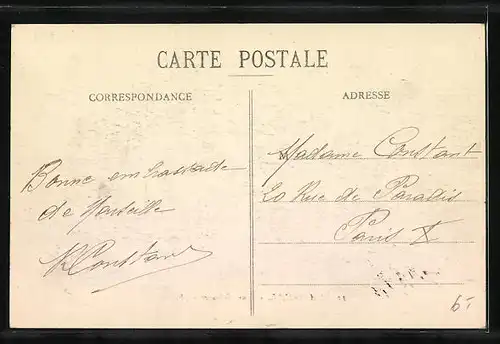 CARTE POSTALE
CORRESPONDANCE
ADRESSE
Bonne embrassade
de Marseille
Constant
Madame Constant
20 Rue de Paradis
Paris X
6-